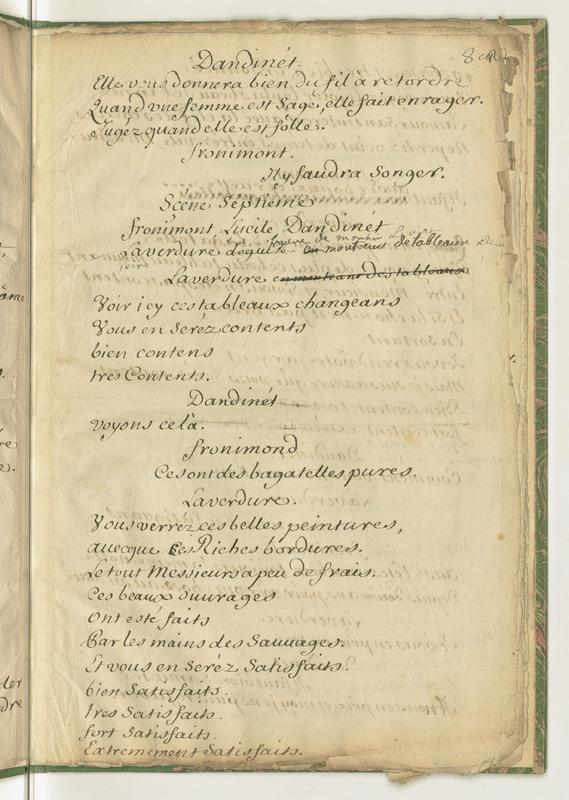 8
Dandinét.
Elle vous donnera bien du fil à retordre
Quand vne femme est sage, elle fait enrager.
Jugéz quand elle est fôlle.
fronimont.
Il y faudra songer.
Scéne Septiéme
fronimont, Lucile, Dandinét
Laverdure déguisé en montreur de tableaux
Laverdure en montrant des tableaux
Voir icy ces tableaux changeans
Vous en seréz contents
bien contens
tres Contents.
Dandinét
voyons cela.
fronimond
Ce sont des bagatelles pures.
Laverdure.
Vous verrez ces belles peintures,
auecque ces Riches bordures.
Le tout Messieurs a peu de frais.
Ces beaux ouurages
Ont esté faits
Par les mains des Sauuages.
Et vous en seréz Satisfaits.
bien Satisfaits.
tres Satisfaits.
fort Satisfaits.
Extremement Satisfaits.